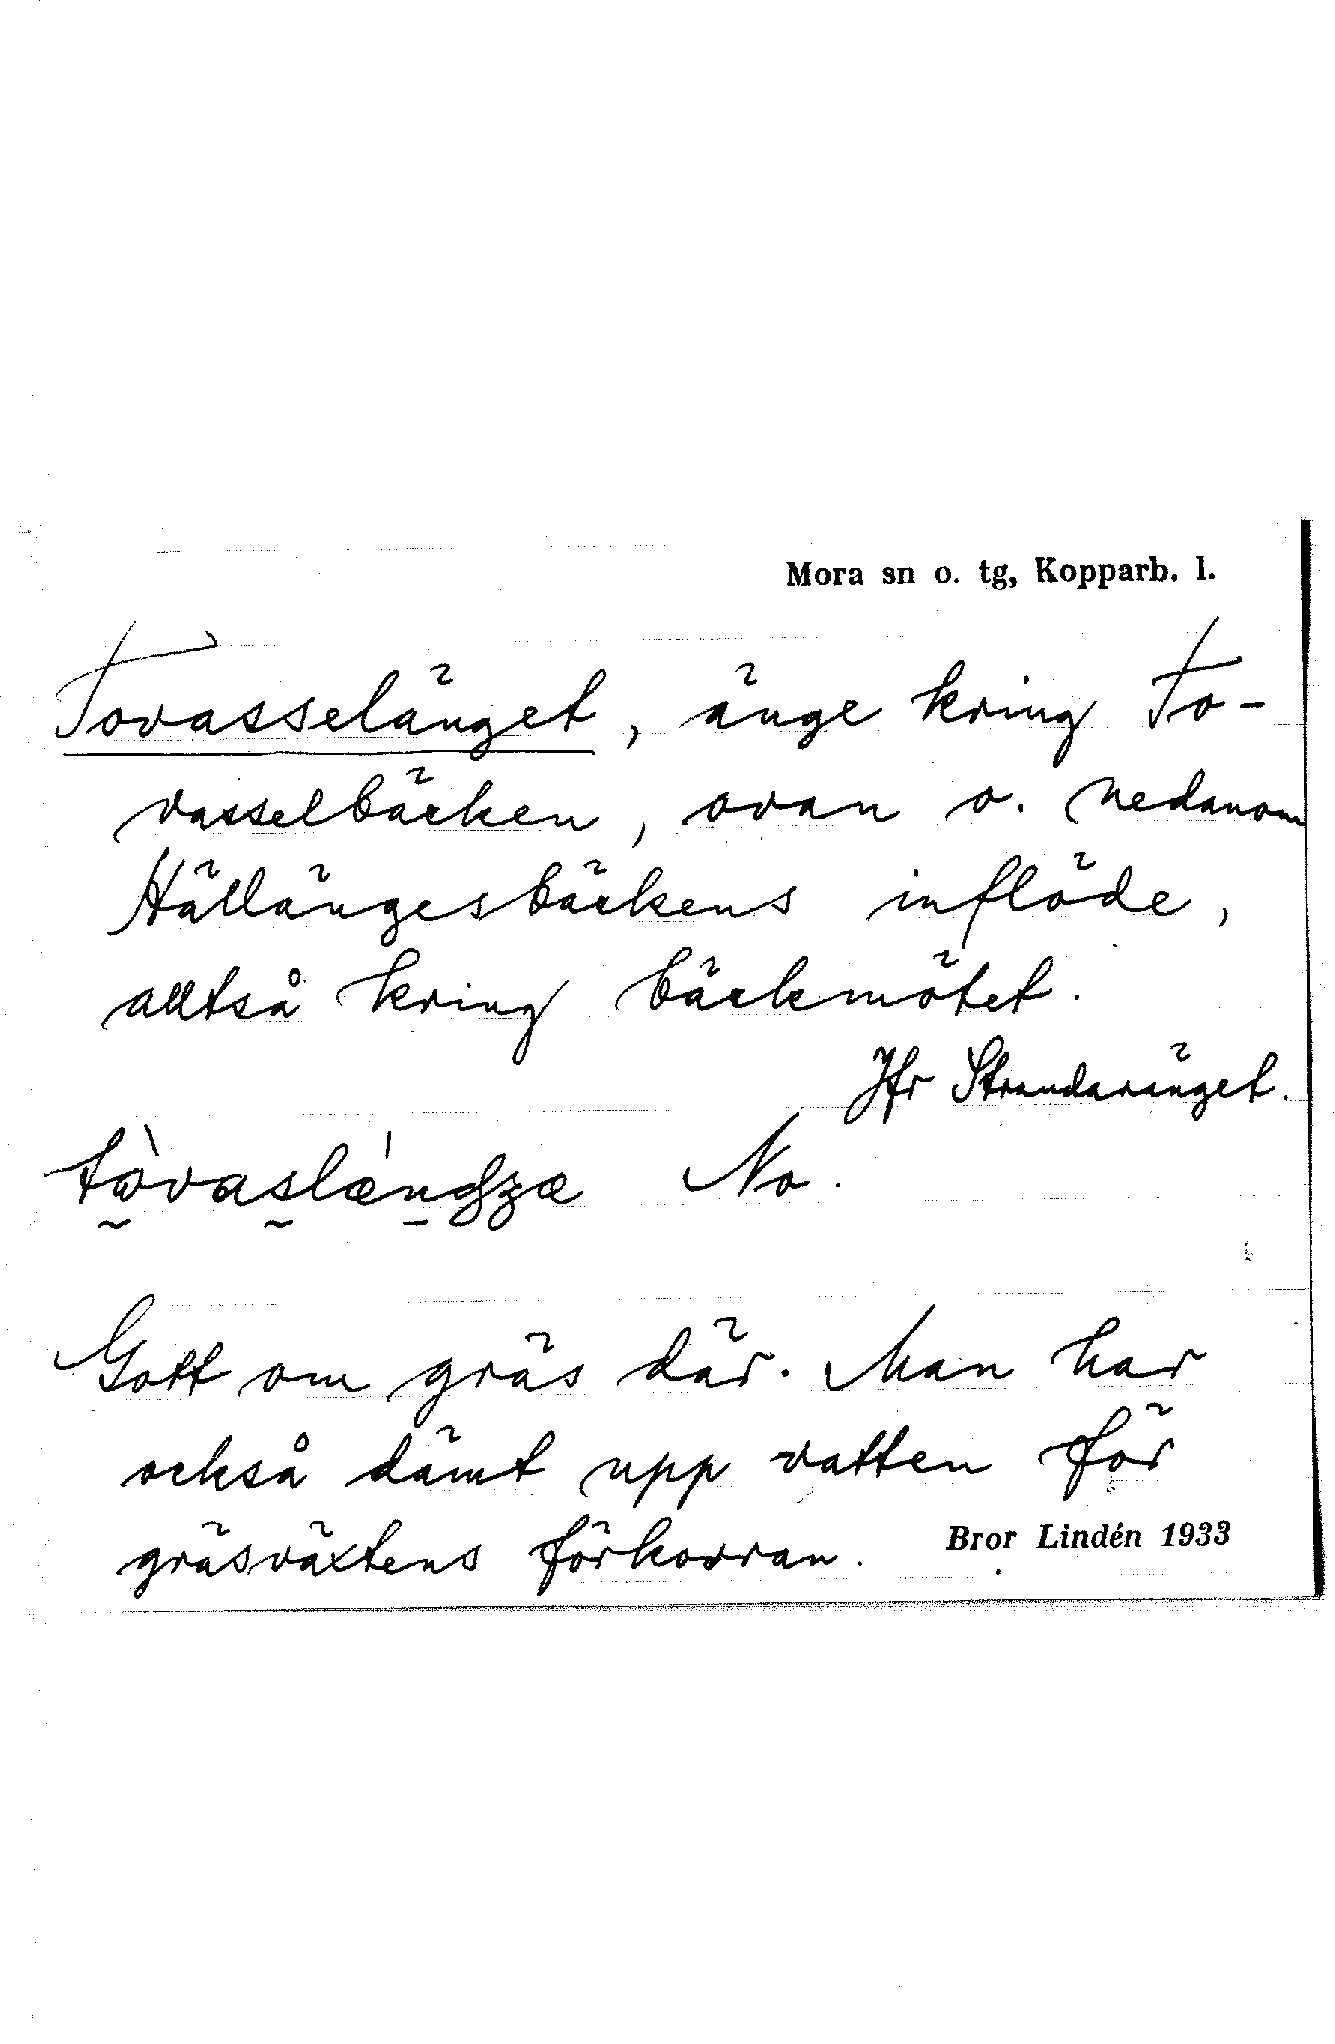 Mora sn o. tg, Kopparb. l.
Tovasselänget, änge kring To-
vasselbäcken, ovan o. nedanom
Hällängesbäckens inflöde,
alltså kring bäckmötet.
Jfr Strandaränget.
No.
Gott om gräs där. Man har
också dämt upp vatten för
gräsväxtens förkovran.
Bror Lindén 1933